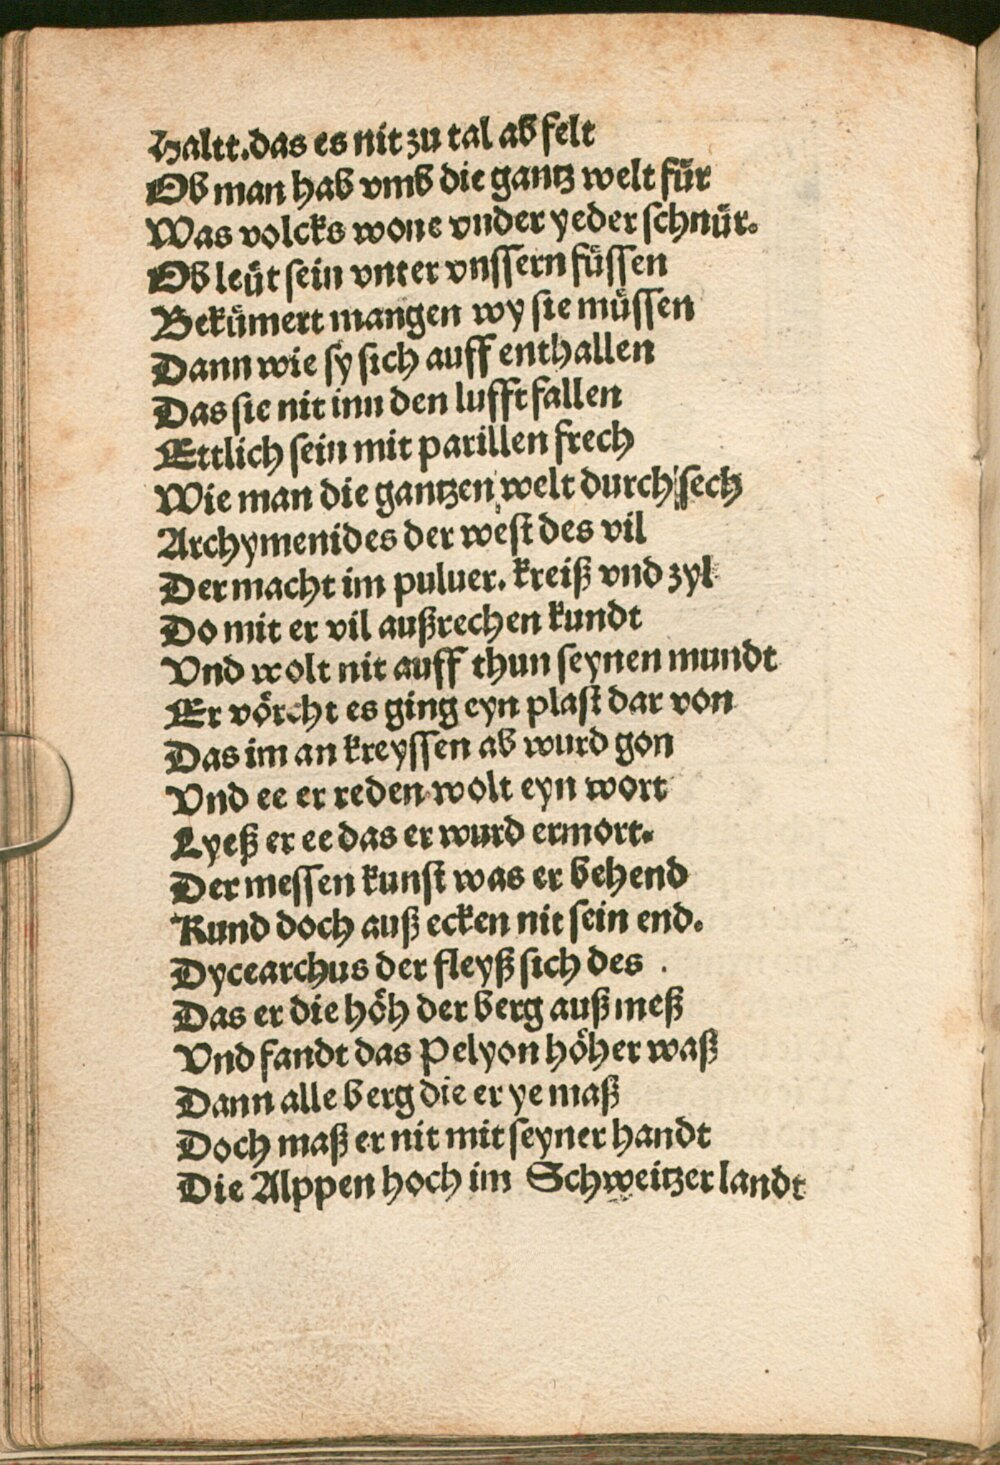 Haltt. das es nit zu tal ab felt
Ob man hab vmb die gantz welt für
Was volcks wone vnder yeder schnür.
Ob leüt sein vnter vnssern füssen
Bekümert mangen wy sie müssen
Dann wie sy sich auff enthallen
Das sie nit inn den lufft fallen
Ettlich sein mit parillen frech
Wie man die gantzen welt durch sech
Archymenides der west des vil
Der macht im puluer. kreiß vnd zyl
Do mit er vil außrechen kundt
Vnd wolt nit auff thun seynen mundt
Er vörcht es ging eyn plast dar von
Das im an kreyssen ab wurd gon
Vnd ee er reden wolt eyn wort
Lyeß er ee das er wurd ermort.
Der messen kunst was er behend
Kund doch auß ecken nit sein end.
Dycearchus der fleyß sich des .
Das er die höh der berg auß meß
Vnd fandt das Pelyon höher waß
Dann alle berg die er ye maß
Doch maß er nit mit seyner handt
Die Alppen hoch im Schweitzer landt